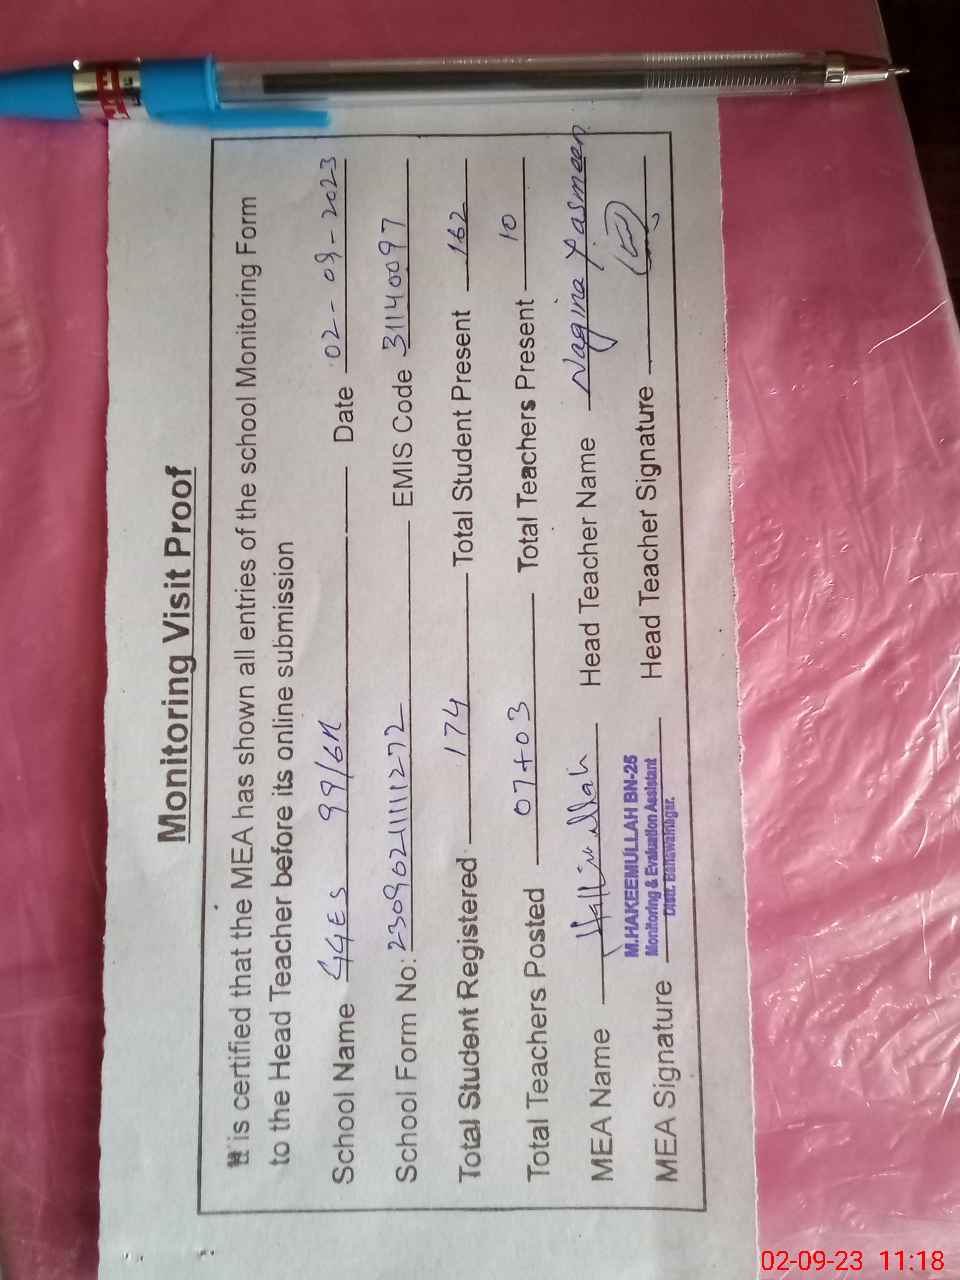 Monitoring Visit Proof
It is certified that the MEA has shown all entries of the school Monitoring Form
to the Head Teacher before its online submission
School Name GGES 99/6R Date 02-09-2023
School Form No: 230902111111272 EMIS Code 31140097
Total Student Registered 174 Total Student Present 162
Total Teachers Posted 07+03 Total Teachers Present 10
MEA Name Head Teacher Name Nagina Yasmeen
M.HAKEEMULLAH BN-25
Monitoring & Evaluation Assistant
Distt. Bahawalnagar.
MEA Signature Head Teacher Signature
02-09-23 11:18